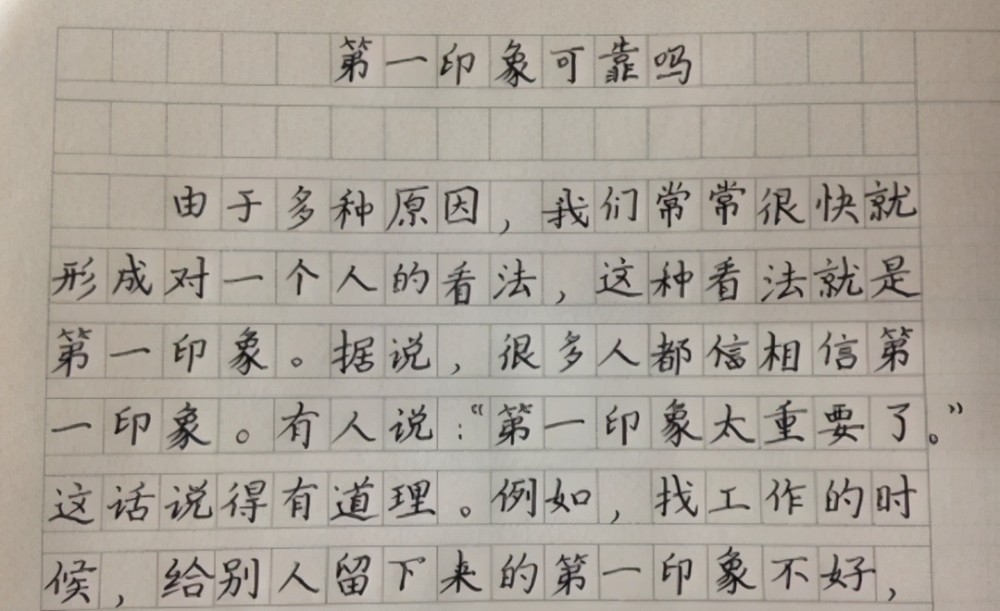 第一印象可靠吗
由于多种原因，我们常常很快就
形成对一个人的看法，这种看法就是
第一印象。据说，很多人都信相信第
一印象。有人说：“第一印象太重要了。”
这话说得有道理。例如，找工作的时
候，给别人留下来的第一印象不好，